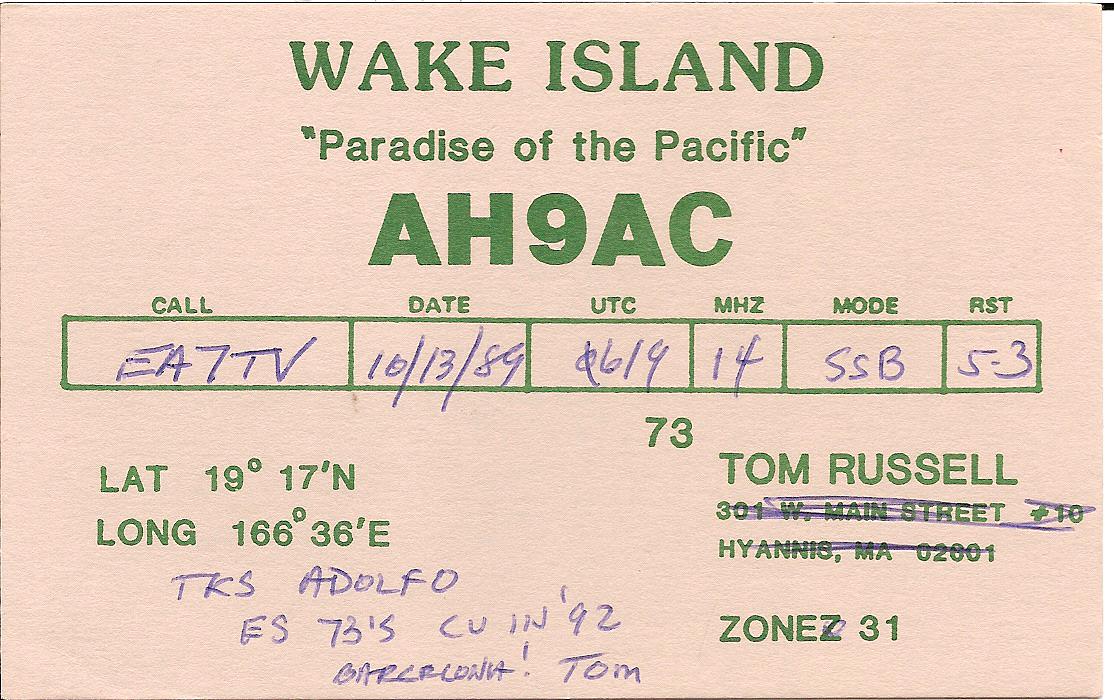 WAKE ISLAND
"Paradise of the Pacific"
AH9AC
CALL DATE UTC MHZ MODE RST
EA7TV 10/13/89 0619 14 SSB 5-3
73
LAT 19° 17'N
LONG 166° 36'E
TOM RUSSELL
301 W. MAIN STREET #10
HYANNIS, MA 02601
ZONE 31
TKS ADOLFO
ES 73'S CU IN '92
BARCELONA! TOM